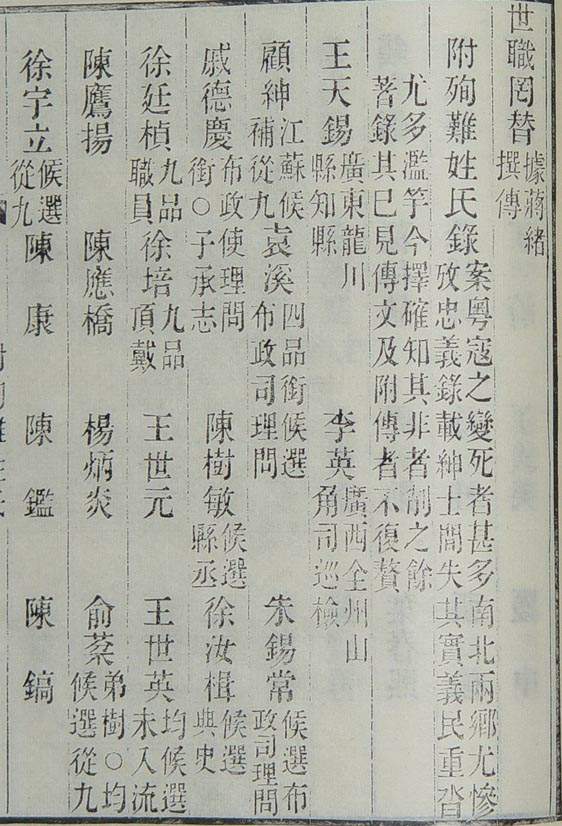 世職罔替據蔣緒撰傳
附殉難姓氏錄案粵寇之變死者甚多南北兩鄉尤慘攷忠義錄載紳士間失其實義民重沓
尤多濫竽今擇確知其非者削之餘著錄其已見傳文及附傳者不復贅
王天錫廣東龍川縣知縣 李英廣西全州山角司巡檢
顧紳江蘇候補從九 袁溪四品銜候選布政司理問 朱錫常候選布政司理問
戚德慶布政使理問銜○子承志 陳樹敏候選縣丞 徐汝楫候選典史
徐廷楨九品職員 徐培九品頂戴 王世元 王世英均候選未入流
陳鷹揚 陳應橋 楊炳炎 俞棻弟樹○均候選從九
徐宇立候選從九 陳康 陳鑑 陳鎬